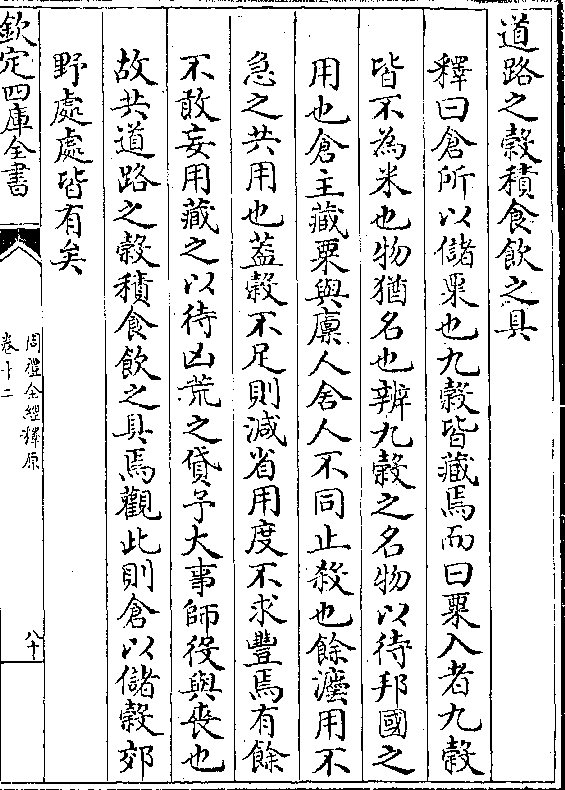 道路之榖積食飲之具
釋曰倉所以儲粟也九榖皆藏焉而曰粟入者九榖
皆不為米也物猶名也辨九榖之名物以待邦國之
用也倉主藏粟與廩人舍人不同止殺也餘灋用不
急之共用也葢榖不足則減省用度不求豐焉有餘
不敢妄用藏之以待凶荒之貸予大事師役與喪也
故共道路之榖積食飲之具焉觀此則倉以儲榖郊
野處處皆有矣
欽定四庫全書
周禮全經釋原
卷十二
八十